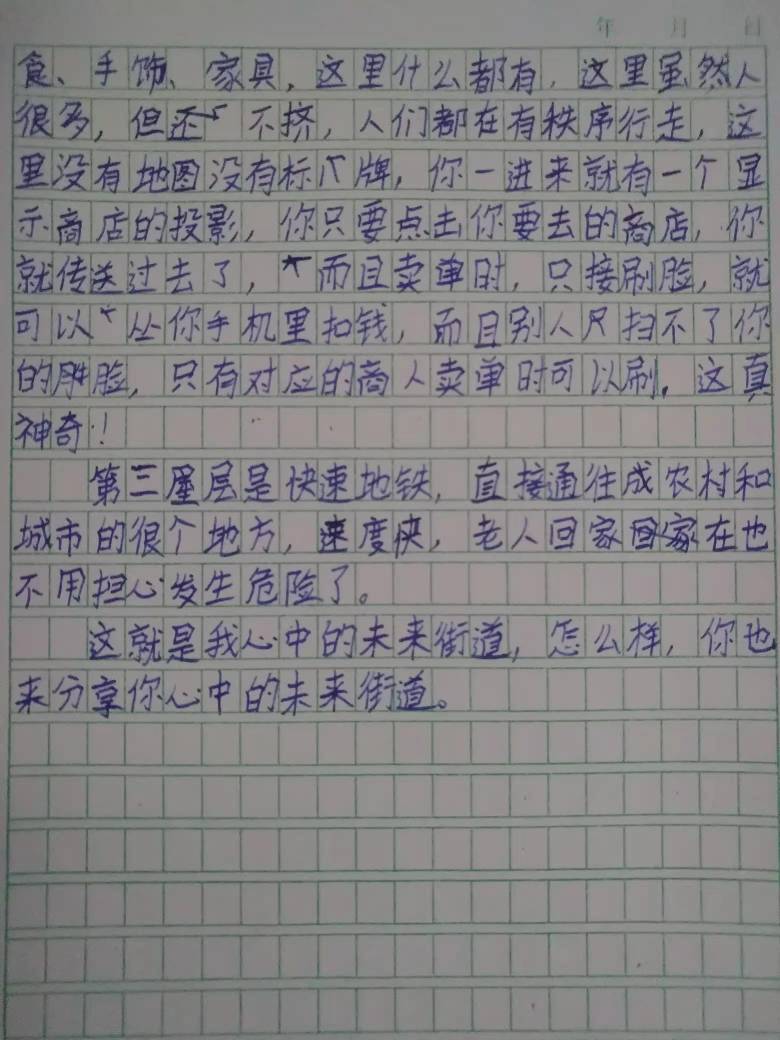 年 月 日
食、手饰、家具，这里什么都有，这里虽然人
很多，但还不挤，人们都在有秩序行走，这
里没有地图没有标牌，你一进来就有一个显
示商店的投影，你只要点击你要去的商店，你
就传送过去了，而且卖单时，只接刷脸，就
可以从你手机里扣钱，而且别人尺扫不了你
的脸，只有对应的商人卖单时可以刷。这真
神奇！
第三层是快速地铁，直接通往成农村和
城市的很个地方，速度快，老人回家回家在也
不用担心发生危险了。
这就是我心中的未来街道，怎么样，你也
来分享你心中的未来街道。